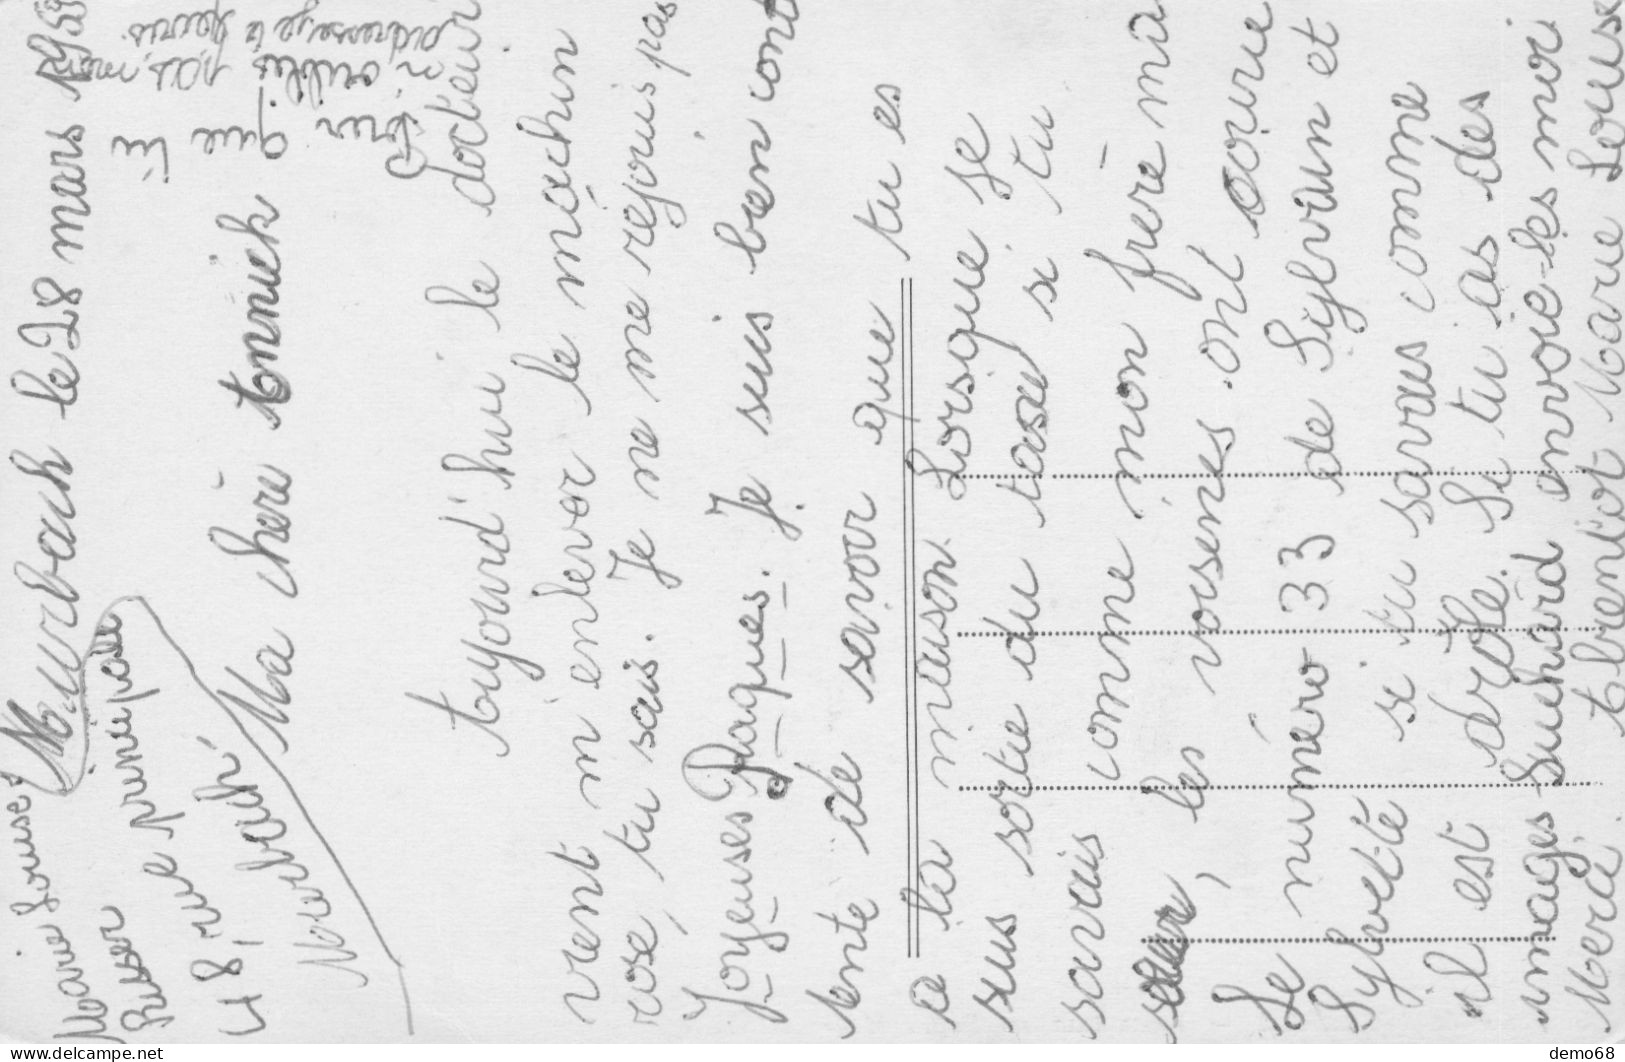 Marie Louise
48, rue Principale
Murbach.
Murbach le 28 mars
Ma chère
toujourd'hui le docteur
vient m'enlevor le machin
rose, tu sais. Je ne me rejouis pas
Joyeuses Paques. Je suis bien cont
ente de savoir que tu es
a la maison. Lorsque je
suis sortie du tasu si tu
savais comme mon frère m'a
, les voisines ont
Le numéro 33 de Sylvian et
Sylvette si tu savais comme
il est drôle. Si tu as des
images Suchard envoie-les moi
Merci. Marie Louise
pour que tu
n'oublies pas mon
adresse je te